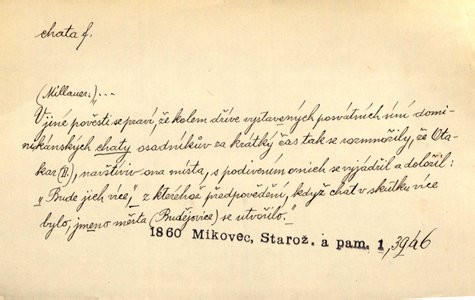 chata f.
(Millauer:)„...
V jiné pověsti se praví, že kolem dříve vystavených posvátních síní domi-
nikánských chaty osadníkův za krátký čas tak se rozmnožily, že Ota-
kar (II), navštíviv ona místa, s podivením o nich se vyjádřil a doložil:
„Bude jich více", z kteréhož předpovědění, kdyžchat v skutku více
bylo, jmeno města (Budějovice) se utvořilo."
1860 Mikovec, Starož. a pam. 1, 3946